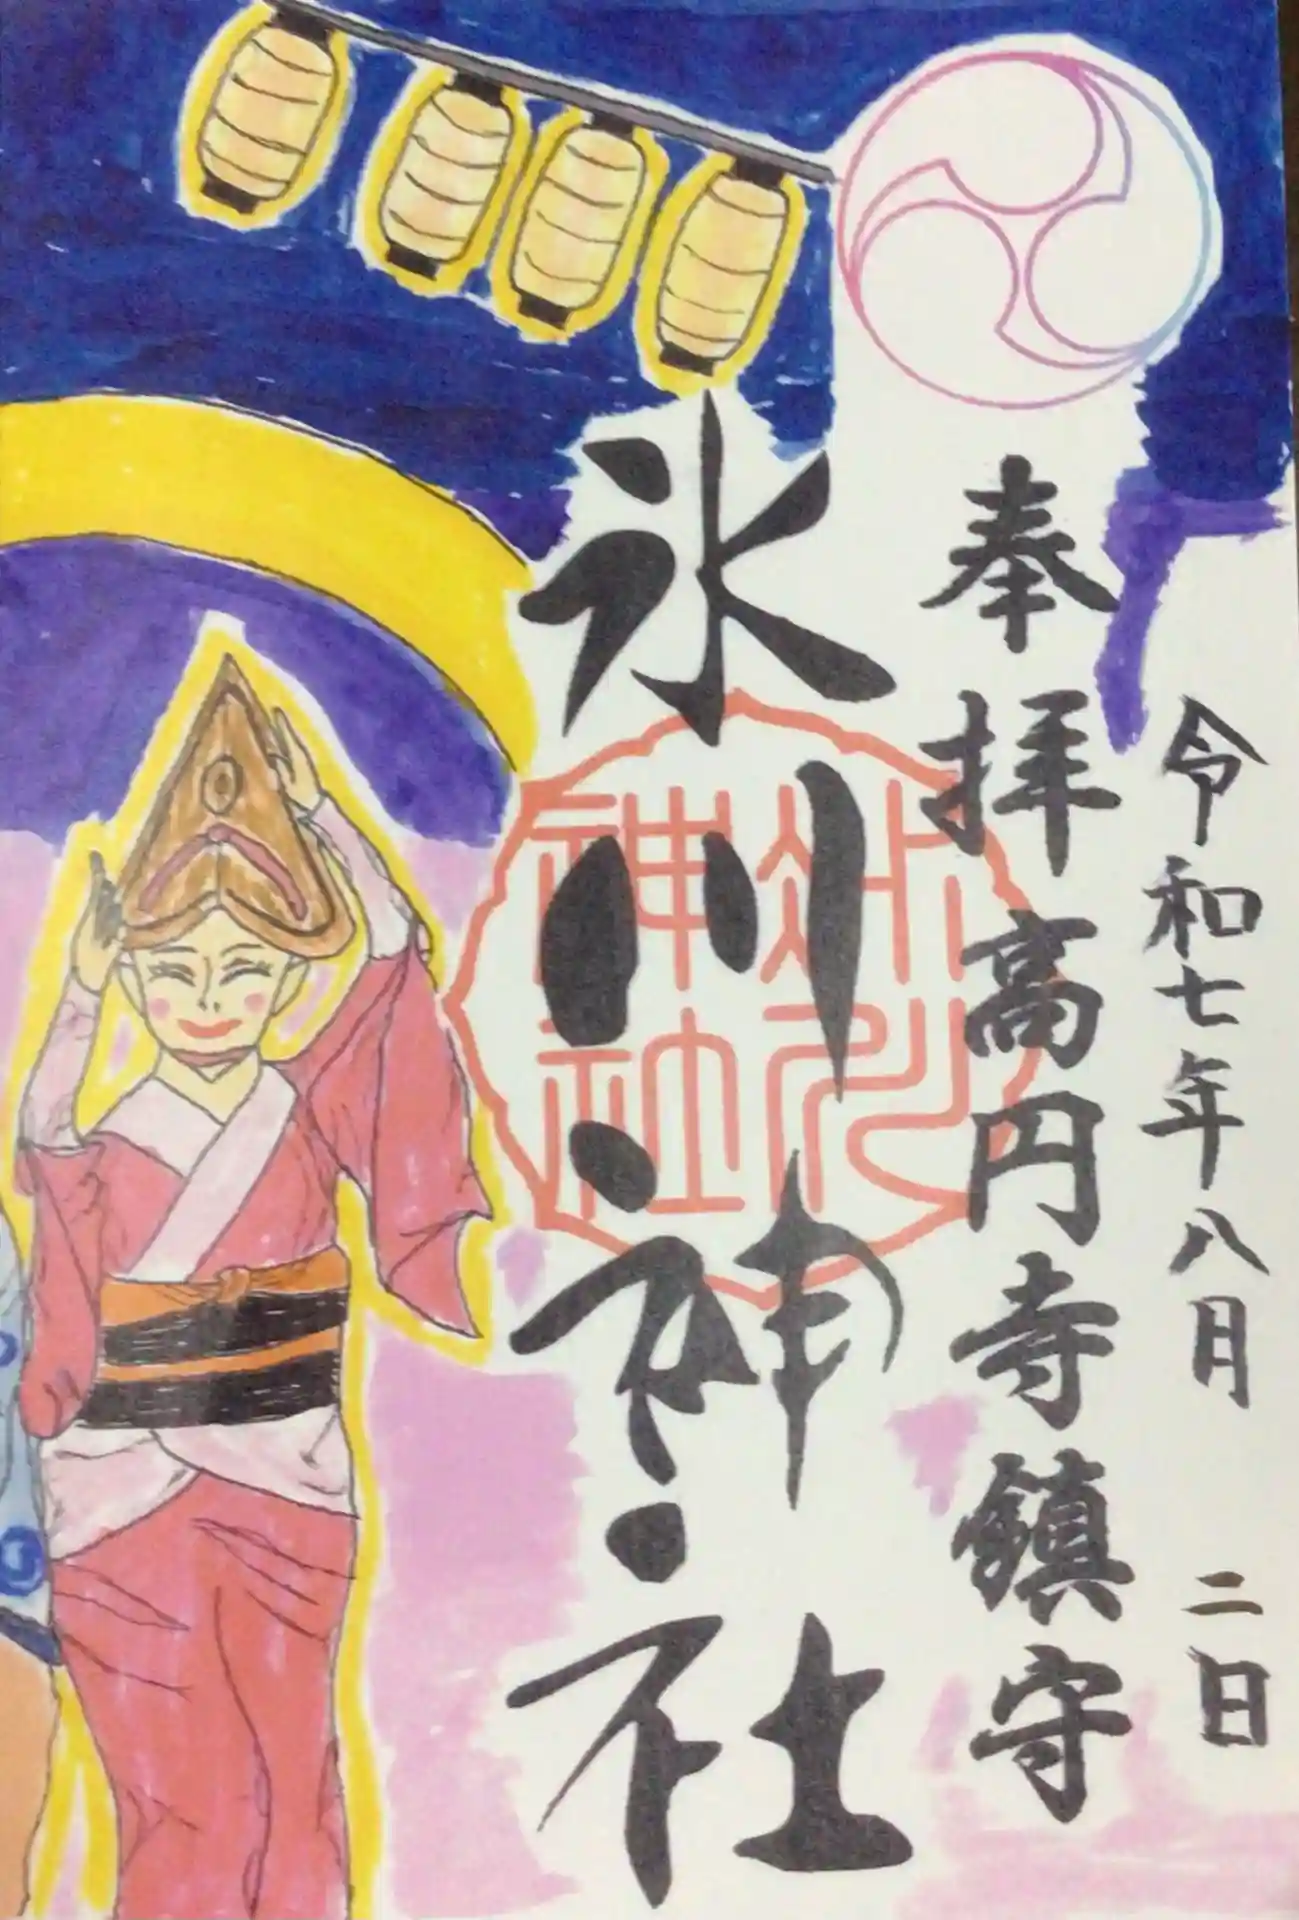 令和七年八月二日
奉拝 高円寺鎮守
氷川神社